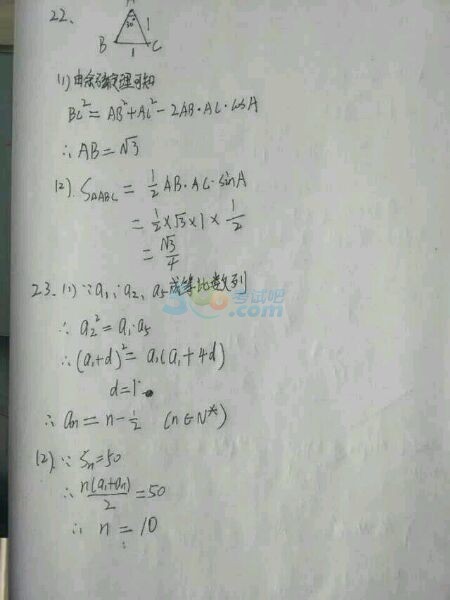 22、
A
30°
1
B
C
1
(1) 由余弦定理可知
BC²=AB²+AC²-2AB·AC·cosA
∴ AB=√3
(2). S△ABC = 1/2 AB·AC·sinA
= 1/2×√3×1×1/2
= √3/4
23. (1) ∵a₁, a₂, a₅成等比数列
∴ a₂²=a₁·a₅
∴(a₁+d)²=a₁(a₁+4d)
d=1
∴ an=n-1/2 (n∈N*)
(2). ∵ Sn=50
∴ n(a₁+an)/2=50
∴ n=10
考试吧
.com